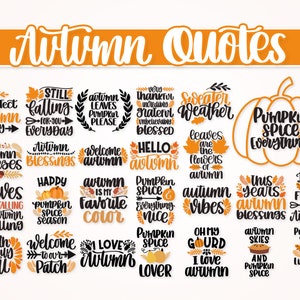 Autumn Quotes
STILL
falling
FOR YOU
Everyday
autumn
LEAVES
PUMPKINS
PLEASE
very
thankful
incredibly
grateful
unbelievably
blessed
Sweater
Weather
PUMPKIN
SPICE
Everything
Autumn
BLESSINGS
Welcome
autumn
HELLO
autumn
leaves
are the
flowers
OF
autumn
HAPPY
PUMPKIN
SPICE
SEASON
autumn
IS MY
Favorite
color
PUMPKIN
SPICE
and
everything
NICE
autumn
vibes
this
years
autumn
blessings
Welcome
to our
Patch
I LOVE
Autumn
PUMPKIN
SPICE
LOVER
OH MY
GOURD
I love
autumn
AUTUMN
SKIES
AND
PUMPKIN
SPICE